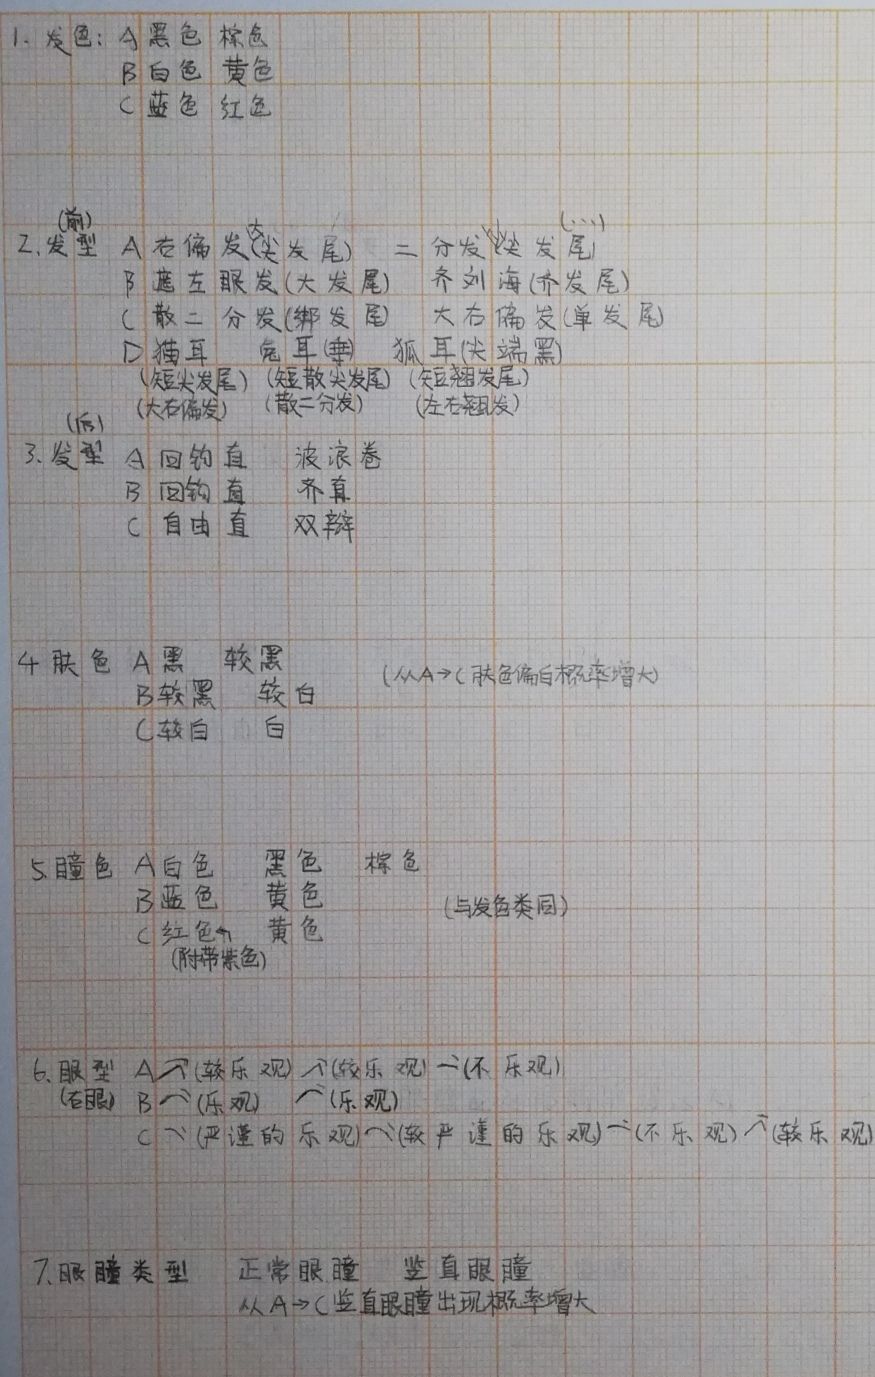 1. 发色: A 黑色 棕色
B 白色 黄色
C 蓝色 红色
(前) (...)
2. 发型 A 右偏发(尖发尾) 二分发(尖发尾)
B 遮左眼发(大发尾) 齐刘海(齐发尾)
C 散二分发(绑发尾) 大右偏发(单发尾)
D 猫耳 兔耳(垂) 狐耳(尖端黑)
(短尖发尾) (短散尖发尾) (短翘发尾)
(大右偏发) (散二分发) (左右翘发)
(后)
3. 发型 A 回钩直 波浪卷
B 回钩直 齐直
C 自由直 双辫
4 肤色 A 黑 较黑
(从A→C肤色偏白概率增大)
B 较黑 较白
C 较白 白
5. 瞳色 A 白色 黑色 棕色
B 蓝色 黄色
(与发色类同)
C 红色 黄色
(附带紫色)
6. 眼型 A (较乐观) (较乐观) (不乐观)
(右眼) B (乐观) (乐观)
C (严谨的乐观) (较严谨的乐观) (不乐观) (较乐观)
7. 眼瞳类型 正常眼瞳 竖直眼瞳
从A→C竖直眼瞳出现概率增大